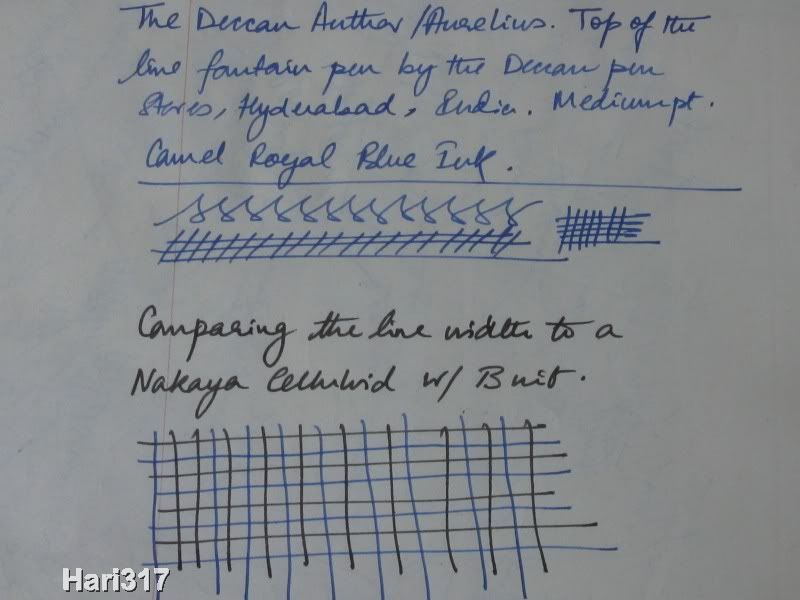 The Deccan Author/Aurelius. Top of the
line fountain pen by the Deccan pen
Stores, Hyderabad, India. Medium pt.
Camel Royal Blue Ink.
Comparing the line width to a
Nakaya Celluloid w/ B nib.
Hari317